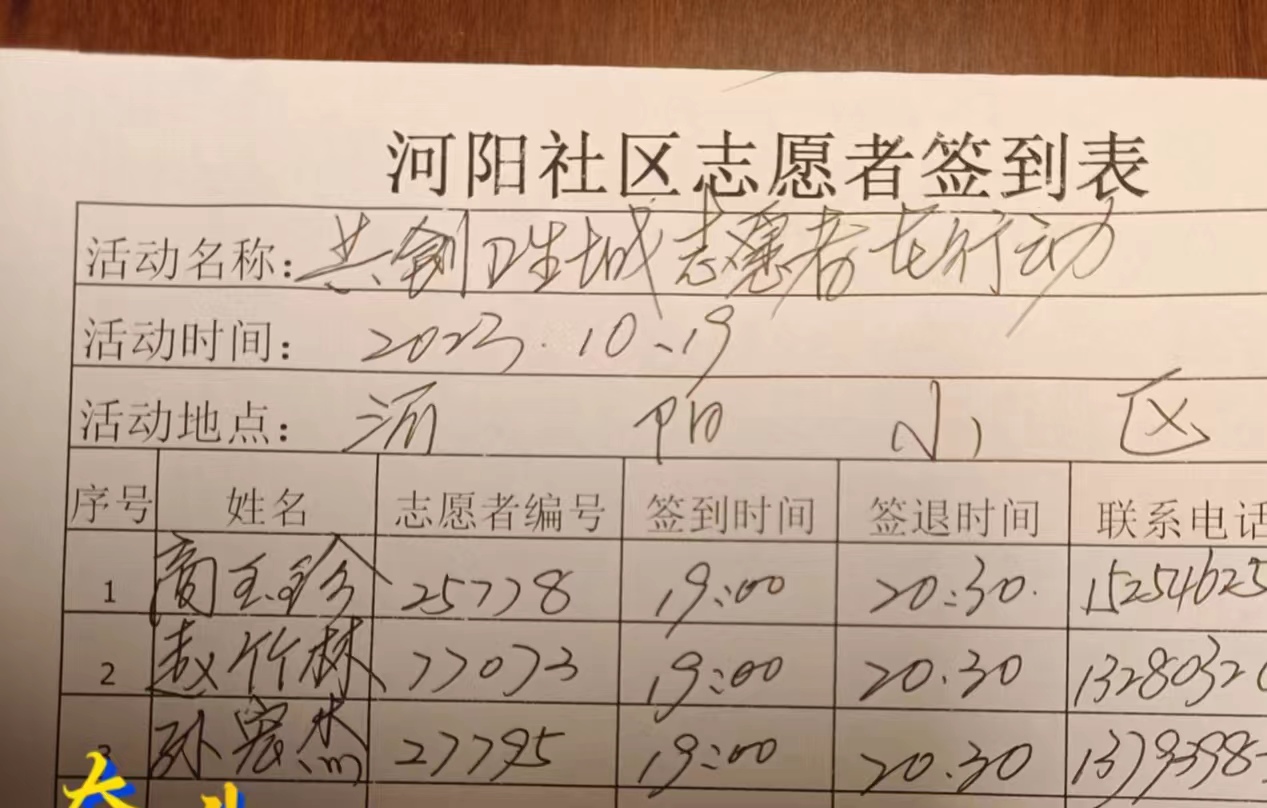 河阳社区志愿者签到表
活动名称: 共创卫生城志愿者在行动
活动时间: 2023.10.19
活动地点: 河阳小区
序号 姓名 志愿者编号 签到时间 签退时间 联系电话
1 商玉珍 25778 19:00 20:30. 15254625
2 赵竹林 77073 19:00 20.30 1328032
3 孙宏杰 27795 19:00 20.30 13793985